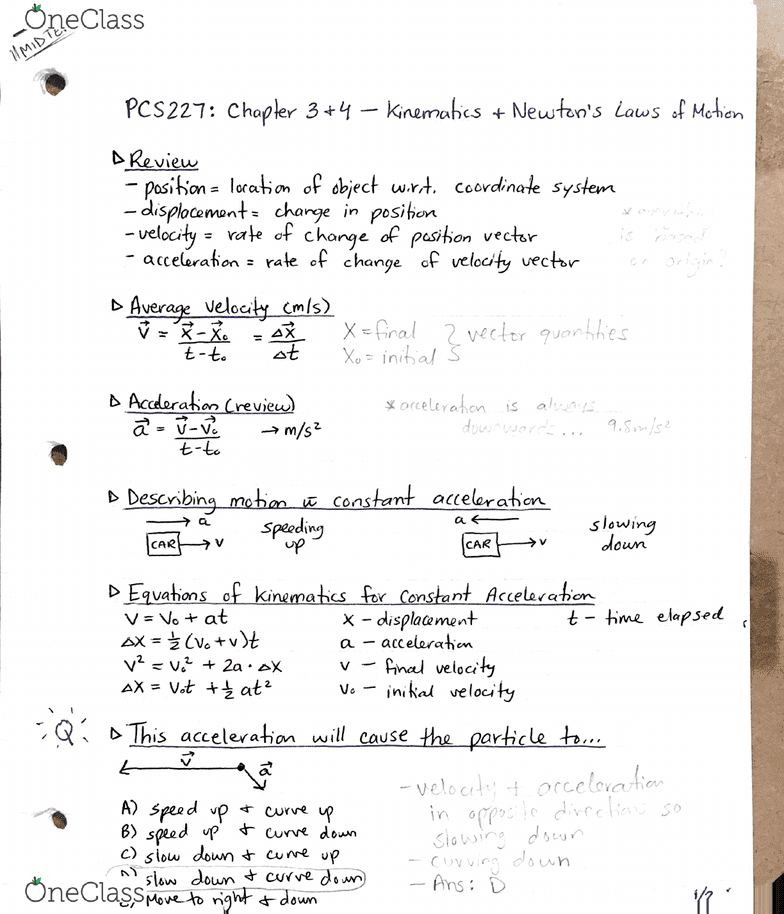 OneClass
PCS227: Chapter 3+4 — Kinematics + Newton's Laws of Motion
Review
- position = location of object w.r.t. coordinate system
- displacement = change in position
- velocity = rate of change of position vector
- acceleration = rate of change of velocity vector
is
or origin?
Average velocity (m/s)
v⃗ = (x⃗ - x⃗₀)/(t - t₀) = Δx⃗/Δt
X = final } vector quantities
X₀ = initial
Acceleration (review)
a⃗ = (v⃗ - v⃗₀)/(t - t₀) → m/s²
* acceleration is always
downwards... 9.8m/s²
Describing motion w constant acceleration
a
CAR v speeding up
a
CAR v slowing down
Equations of Kinematics for Constant Acceleration
V = V₀ + at
X - displacement
t - time elapsed
ΔX = ½(V₀ + V)t
a - acceleration
V² = V₀² + 2a · ΔX
V - final velocity
ΔX = V₀t + ½ at²
V₀ - initial velocity
Q
This acceleration will cause the particle to...
v⃗ a⃗
A) speed up + curve up
B) speed up + curve down
C) slow down + curve up
D) slow down + curve down
E) Move to right + down
- velocity + acceleration
in opposite directions so
slowing down
- curving down
- Ans: D
OneClass